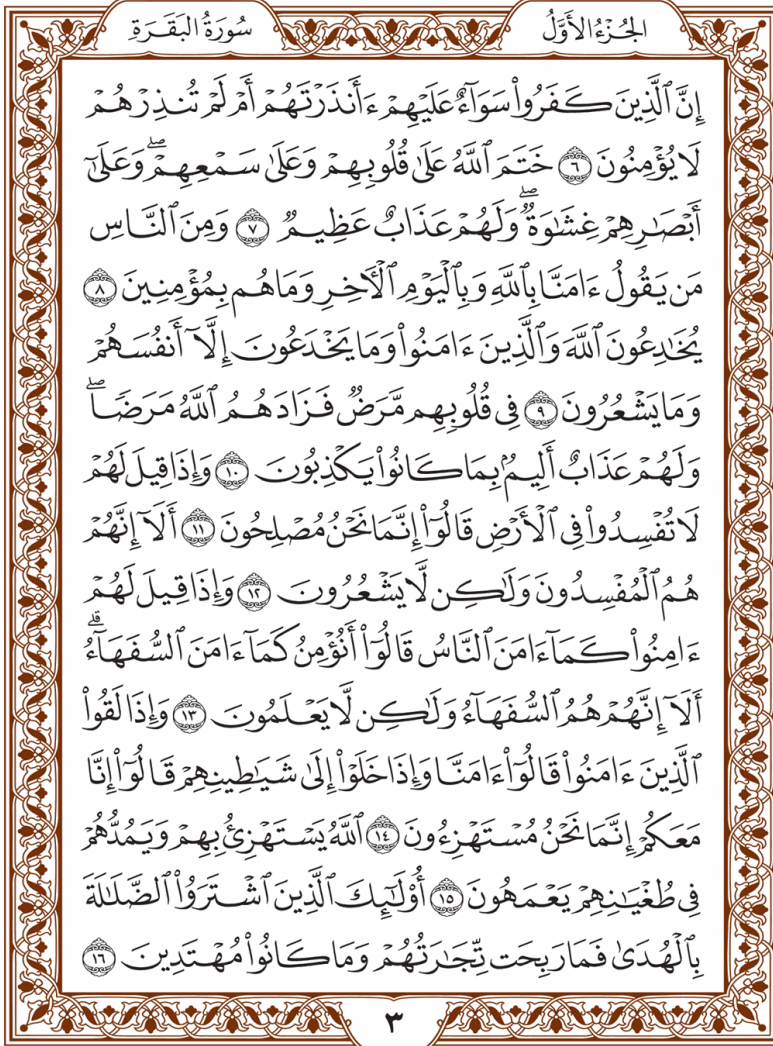 الجُزْءُ الأَوَّلُ
سُورَةُ البَقَرَةِ
إِنَّ ٱلَّذِينَ كَفَرُواْ سَوَآءٌ عَلَيۡهِمۡ ءَأَنذَرۡتَهُمۡ أَمۡ لَمۡ تُنذِرۡهُمۡ
لَا يُؤۡمِنُونَ ٦ خَتَمَ ٱللَّهُ عَلَىٰ قُلُوبِهِمۡ وَعَلَىٰ سَمۡعِهِمۡۖ وَعَلَىٰٓ
أَبۡصَٰرِهِمۡ غِشَٰوَةٞۖ وَلَهُمۡ عَذَابٌ عَظِيمٞ ٧ وَمِنَ ٱلنَّاسِ
مَن يَقُولُ ءَامَنَّا بِٱللَّهِ وَبِٱلۡيَوۡمِ ٱلۡأٓخِرِ وَمَا هُم بِمُؤۡمِنِينَ ٨
يُخَٰدِعُونَ ٱللَّهَ وَٱلَّذِينَ ءَامَنُواْ وَمَا يَخۡدَعُونَ إِلَّآ أَنفُسَهُمۡ
وَمَا يَشۡعُرُونَ ٩ فِي قُلُوبِهِم مَّرَضٞ فَزَادَهُمُ ٱللَّهُ مَرَضٗاۖ
وَلَهُمۡ عَذَابٌ أَلِيمُۢ بِمَا كَانُواْ يَكۡذِبُونَ ١٠ وَإِذَا قِيلَ لَهُمۡ
لَا تُفۡسِدُواْ فِي ٱلۡأَرۡضِ قَالُوٓاْ إِنَّمَا نَحۡنُ مُصۡلِحُونَ ١١ أَلَآ إِنَّهُمۡ
هُمُ ٱلۡمُفۡسِدُونَ وَلَٰكِن لَّا يَشۡعُرُونَ ١٢ وَإِذَا قِيلَ لَهُمۡ
ءَامِنُواْ كَمَآ ءَامَنَ ٱلنَّاسُ قَالُوٓاْ أَنُؤۡمِنُ كَمَآ ءَامَنَ ٱلسُّفَهَآءُۗ
أَلَآ إِنَّهُمۡ هُمُ ٱلسُّفَهَآءُ وَلَٰكِن لَّا يَعۡلَمُونَ ١٣ وَإِذَا لَقُواْ
ٱلَّذِينَ ءَامَنُواْ قَالُوٓاْ ءَامَنَّا وَإِذَا خَلَوۡاْ إِلَىٰ شَيَٰطِينِهِمۡ قَالُوٓاْ إِنَّا
مَعَكُمۡ إِنَّمَا نَحۡنُ مُسۡتَهۡزِءُونَ ١٤ ٱللَّهُ يَسۡتَهۡزِئُ بِهِمۡ وَيَمُدُّهُمۡ
فِي طُغۡيَٰنِهِمۡ يَعۡمَهُونَ ١٥ أُوْلَٰٓئِكَ ٱلَّذِينَ ٱشۡتَرَوُاْ ٱلضَّلَٰلَةَ
بِٱلۡهُدَىٰ فَمَا رَبِحَت تِّجَٰرَتُهُمۡ وَمَا كَانُواْ مُهۡتَدِينَ ١٦
٣